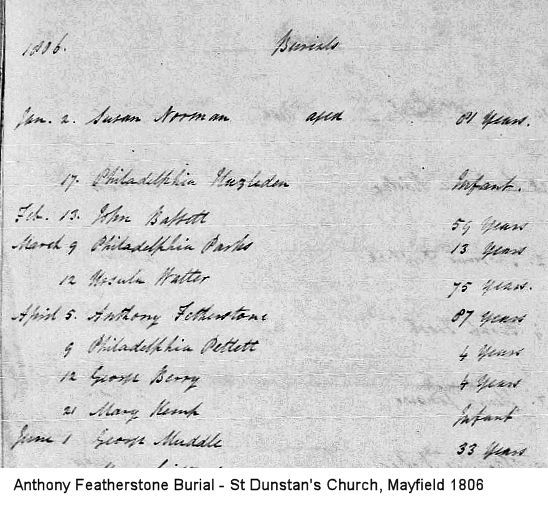 1806. Burials
Jan. 2. Susan Norman aged 81 Years.
17. Philadelphia Infant.
Feb. 13. John Bassett 59 Years
March 9 Philadelphia Parks 13 Years
12 Ursula Walter 75 Years.
April 5. Anthony Fetherstone 87 Years
9 Philadelphia Pettett 4 Years
12 George Berry 4 Years
21 Mary Kemp Infant
June 1 George Muddle 33 Years
Anthony Featherstone Burial - St Dunstan's Church, Mayfield 1806